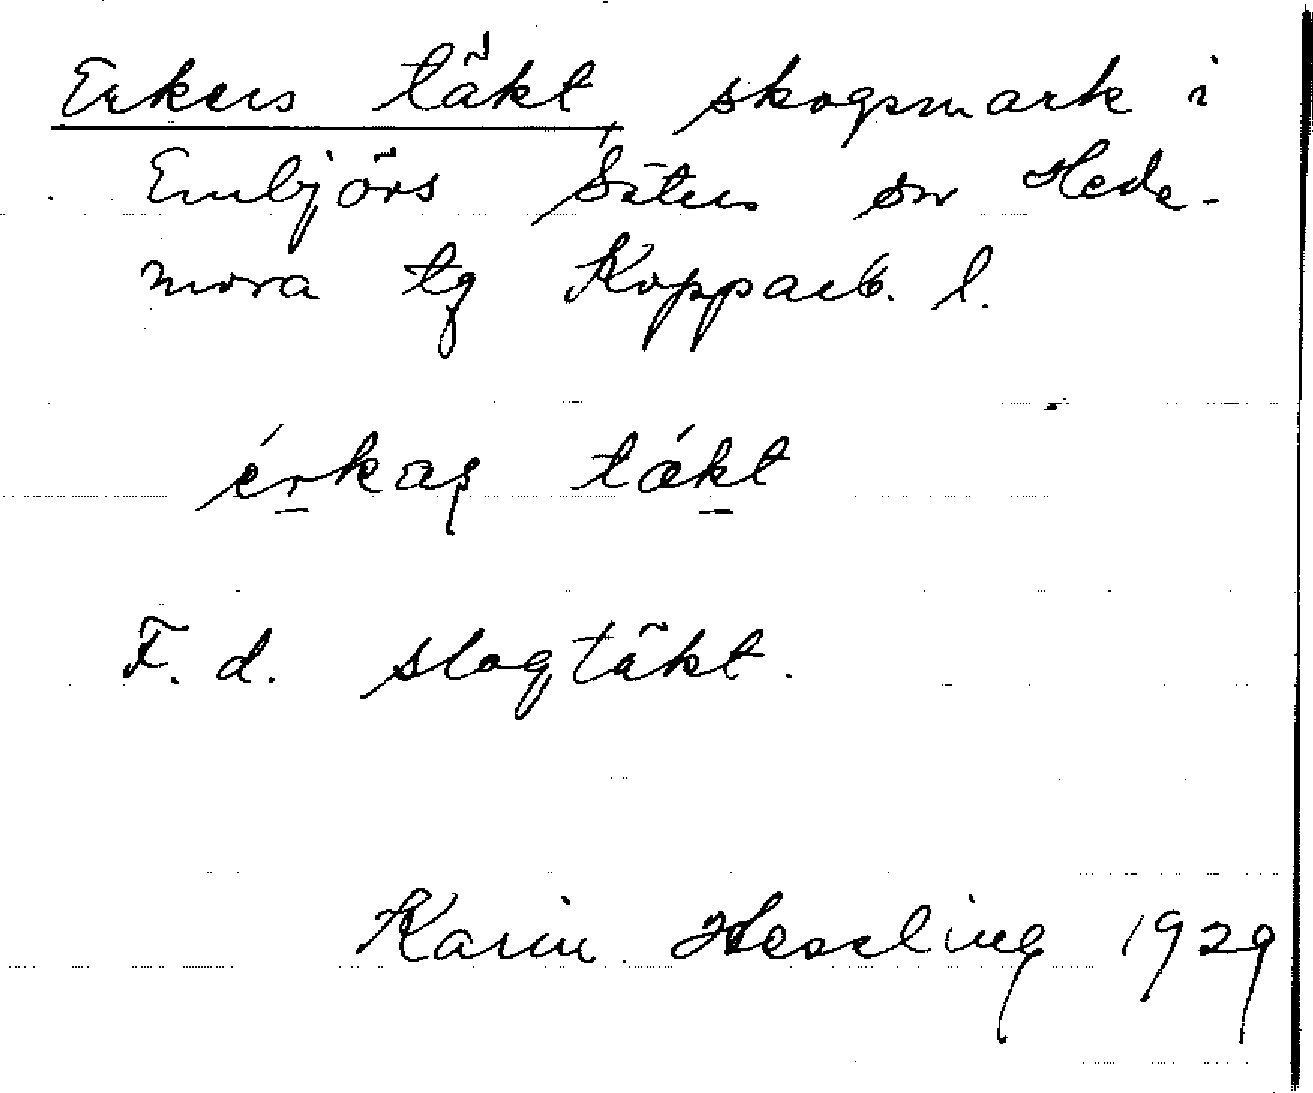 Erkers täkt, skogsmark i
Enbjörs Säters sn Hede-
mora tg Kopparb. l.
érkas tækt
F. d. slogtäkt.
Karin Hessling 1929